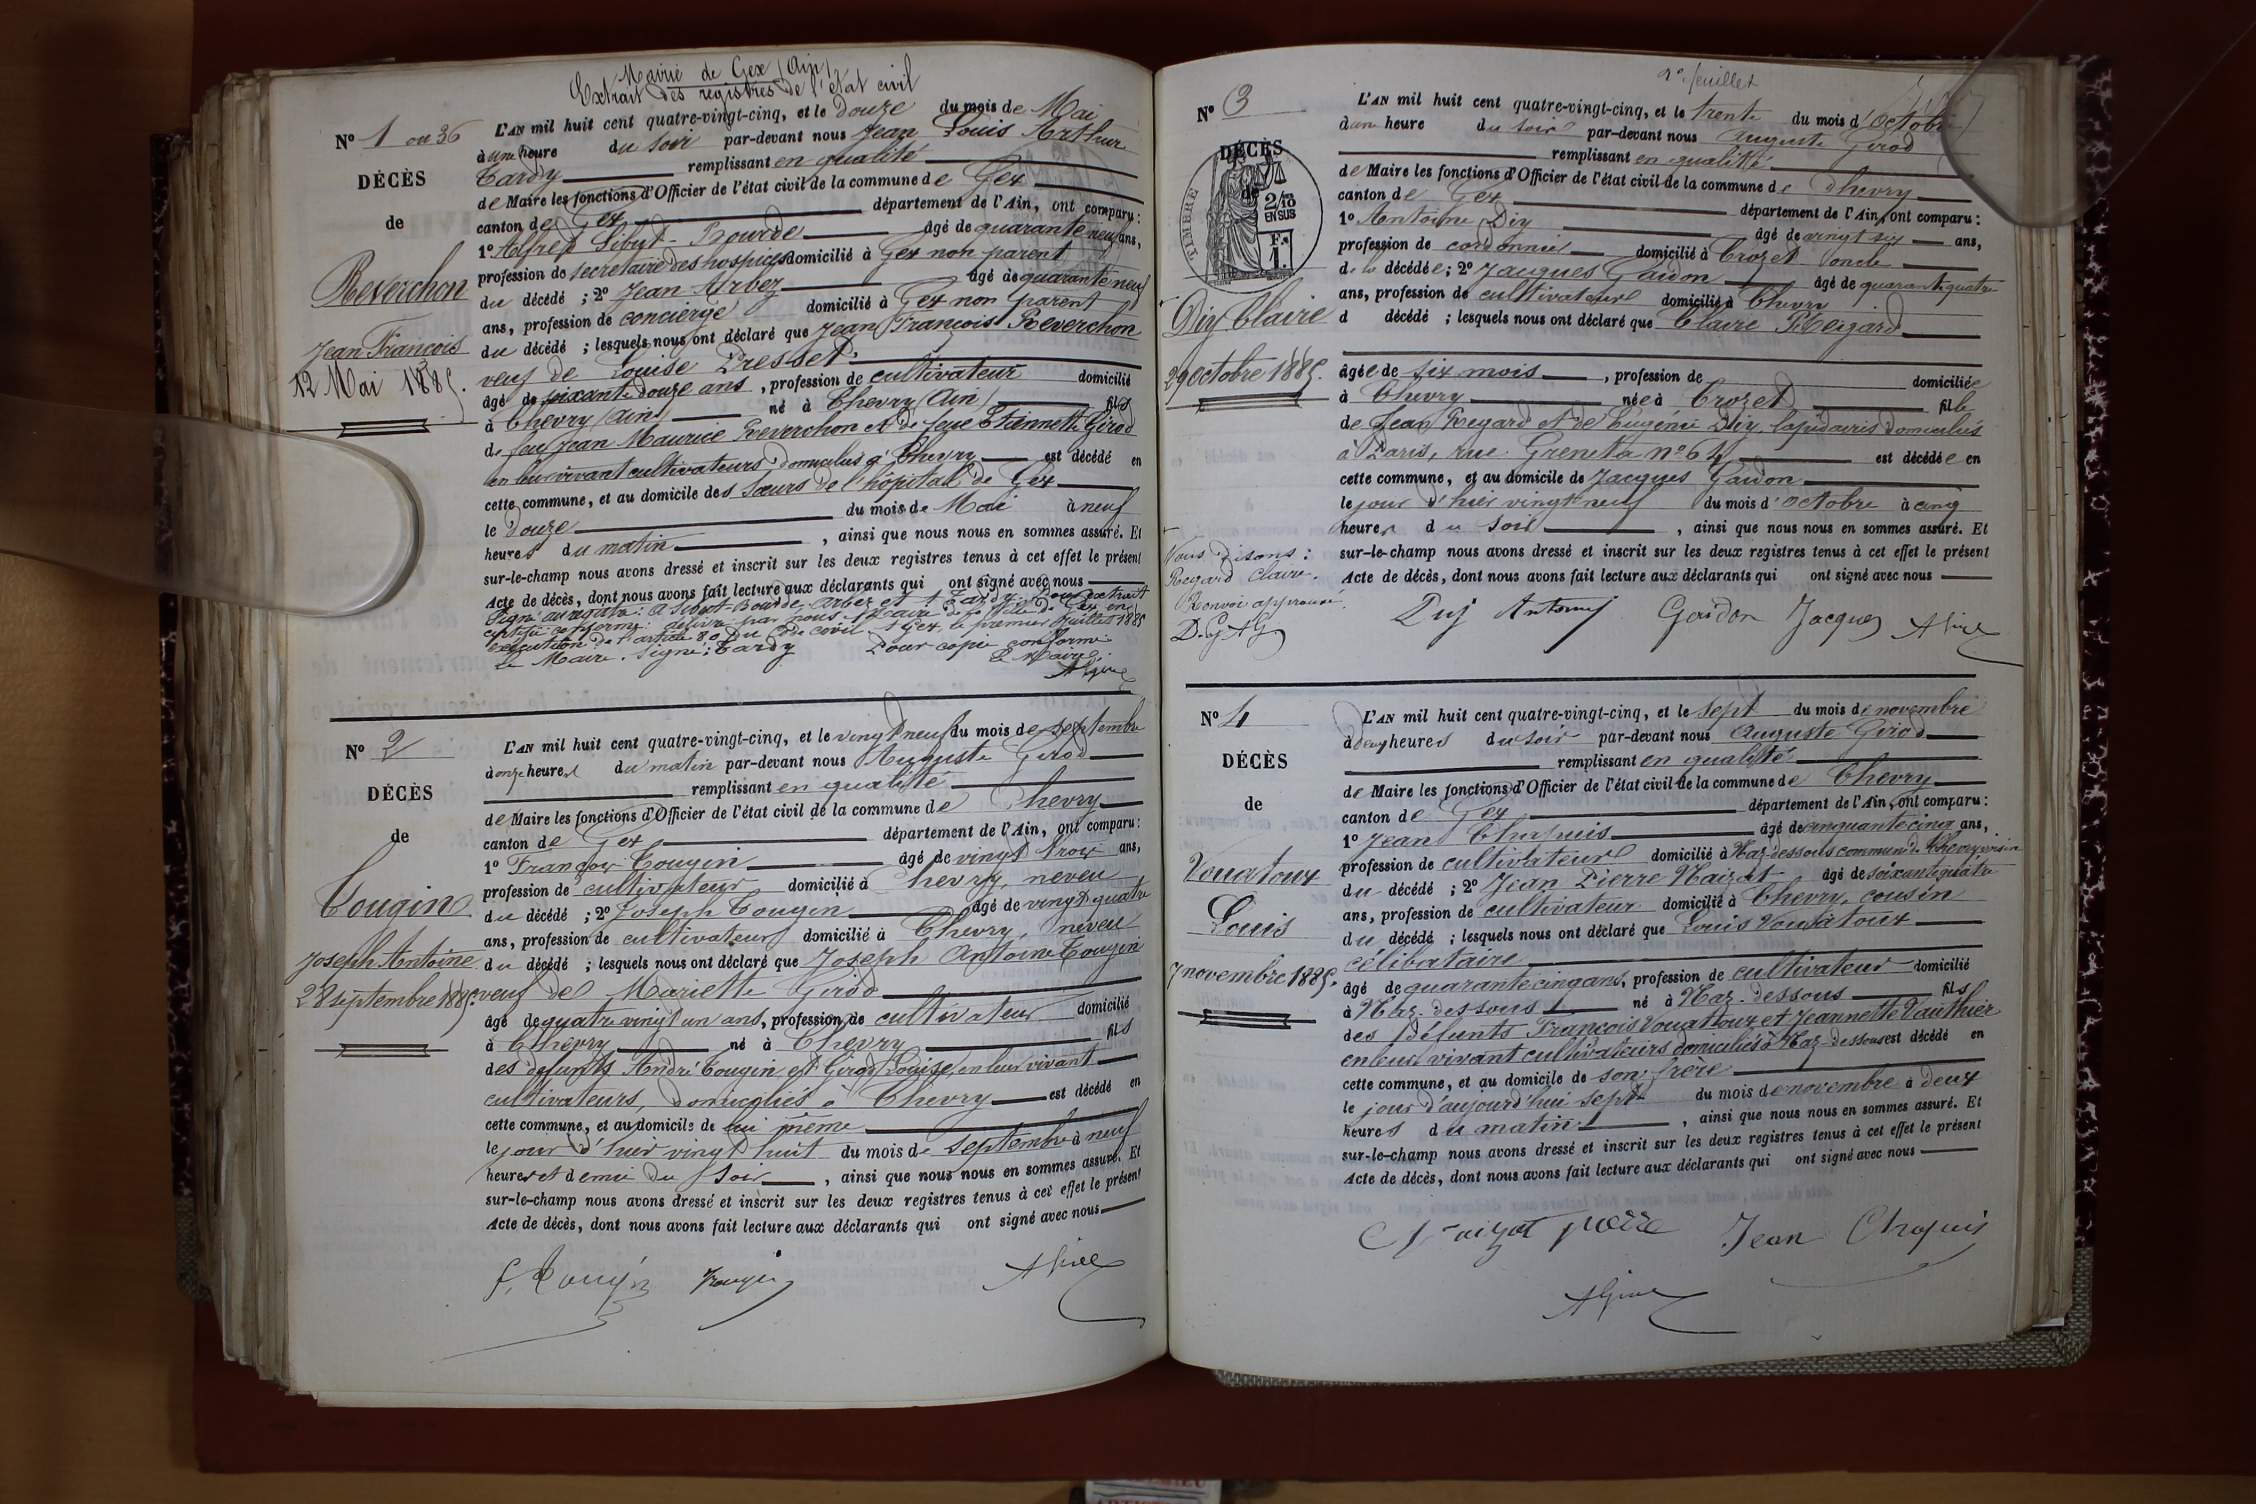 Mairie de Gex (Ain)
Extrait des registres de l'état civil
N° 1 ou 36
DÉCÈS
de
Reverchon
Jean François
12 Mai 1885.
L'AN mil huit cent quatre-vingt-cinq, et le douze du mois de Mai
à une heure du soir par-devant nous Jean Louis Arthur
Tardy remplissant en qualité
de Maire les fonctions d'Officier de l'état civil de la commune de Gex
canton de Gex département de l'Ain, ont comparu :
1° Alfred Sibut-Bourde âgé de quarante neuf ans,
profession de secrétaire des hospices domicilié à Gex non parent
du décédé ; 2° Jean Arbez âgé de quarante neuf
ans, profession de concierge domicilié à Gex non parent
du décédé ; lesquels nous ont déclaré que Jean François Reverchon
veuf de Louise Presset
âgé de soixante douze ans, profession de cultivateur domicilié
à Chevry (Ain) né à Chevry (Ain) fils
de feu Jean Maurice Reverchon et de feue Etiennette Girod
en leur vivant cultivateurs domiciliés à Chevry est décédé en
cette commune, et au domicile des Sœurs de l'hôpital de Gex
le douze du mois de Mai à neuf
heures du matin, ainsi que nous nous en sommes assuré. Et
sur-le-champ nous avons dressé et inscrit sur les deux registres tenus à cet effet le présent
Acte de décès, dont nous avons fait lecture aux déclarants qui ont signé avec nous
Signé au registre : A Sibut-Bourde, Arbez et A Tardy. Pour extrait
certifié conforme : délivré par nous Maire de la ville de Gex en
exécution de l'article 80 du Code civil. A Gex, le premier Juillet 1885
Le Maire. Signé : Tardy Pour copie conforme
Le Maire :
A Girod
N° 2
DÉCÈS
de
Tougin
Joseph Antoine
28 septembre 1885.
L'AN mil huit cent quatre-vingt-cinq, et le vingt neuf du mois de septembre
à onze heures du matin par-devant nous Auguste Girod
remplissant en qualité
de Maire les fonctions d'Officier de l'état civil de la commune de Chevry
canton de Gex département de l'Ain, ont comparu :
1° François Tougin âgé de vingt trois ans,
profession de cultivateur domicilié à Chevry, neveu
du décédé ; 2° Joseph Tougin âgé de vingt quatre
ans, profession de cultivateur domicilié à Chevry, neveu
du décédé ; lesquels nous ont déclaré que Joseph Antoine Tougin
veuf de Mariette Girod
âgé de quatre vingt un ans, profession de cultivateur domicilié
à Chevry né à Chevry fils
des défunts André Tougin et Girod Louise, en leur vivant
cultivateurs, domiciliés à Chevry est décédé en
cette commune, et au domicile de lui même
le jour d'hier vingt huit du mois de septembre à neuf
heures et demie du soir, ainsi que nous nous en sommes assuré. Et
sur-le-champ nous avons dressé et inscrit sur les deux registres tenus à cet effet le présent
Acte de décès, dont nous avons fait lecture aux déclarants qui ont signé avec nous
F. Tougin Tougin A Girod
2e feuillet
N° 3
DÉCÈS
de
TIMBRE
2/10
EN SUS
F.
1.
Diy Claire
29 octobre 1885.
Nous disons :
Regard Claire.
Renvoi approuvé.
D. G. A G
L'AN mil huit cent quatre-vingt-cinq, et le trente du mois d'octobre
à une heure du soir par-devant nous Auguste Girod
remplissant en qualité
de Maire les fonctions d'Officier de l'état civil de la commune de Chevry
canton de Gex département de l'Ain, ont comparu :
1° Antoine Diy âgé de vingt six ans,
profession de cordonnier domicilié à Crozet oncle
de la décédée ; 2° Jacques Gaidon âgé de quarante quatre
ans, profession de cultivateur domicilié à Chevry
d décédé ; lesquels nous ont déclaré que Claire Regard
âgée de six mois, profession de domiciliée
à Chevry née à Crozet fille
de Jean Regard et de Eugénie Diy, lapidaires domiciliés
à Paris, rue Greneta n° 64 est décédée en
cette commune, et au domicile de Jacques Gaidon
le jour d'hier vingt neuf du mois d'octobre à cinq
heures du soir, ainsi que nous nous en sommes assuré. Et
sur-le-champ nous avons dressé et inscrit sur les deux registres tenus à cet effet le présent
Acte de décès, dont nous avons fait lecture aux déclarants qui ont signé avec nous
Diy Antoine Gaidon Jacques A Girod
N° 4
DÉCÈS
de
Vouatoux
Louis
7 novembre 1885.
L'AN mil huit cent quatre-vingt-cinq, et le sept du mois de novembre
à deux heures du soir par-devant nous Auguste Girod
remplissant en qualité
de Maire les fonctions d'Officier de l'état civil de la commune de Chevry
canton de Gex département de l'Ain, ont comparu :
1° Jean Chapuis âgé de cinquante cinq ans,
profession de cultivateur domicilié à Naz-dessous commune de Chevry voisin
du décédé ; 2° Jean Pierre Naizot âgé de soixante quatre
ans, profession de cultivateur domicilié à Chevry, cousin
du décédé ; lesquels nous ont déclaré que Louis Vouatoux
célibataire
âgé de quarante cinq ans, profession de cultivateur domicilié
à Naz-dessous né à Naz-dessous fils
des défunts François Vouattoux et Jeannette Vauthier
en leur vivant cultivateurs domiciliés à Naz-dessous est décédé en
cette commune, et au domicile de son frère
le jour d'aujourd'hui sept du mois de novembre à deux
heures du matin, ainsi que nous nous en sommes assuré. Et
sur-le-champ nous avons dressé et inscrit sur les deux registres tenus à cet effet le présent
Acte de décès, dont nous avons fait lecture aux déclarants qui ont signé avec nous
Naizot pierre Jean Chapuis
A Girod